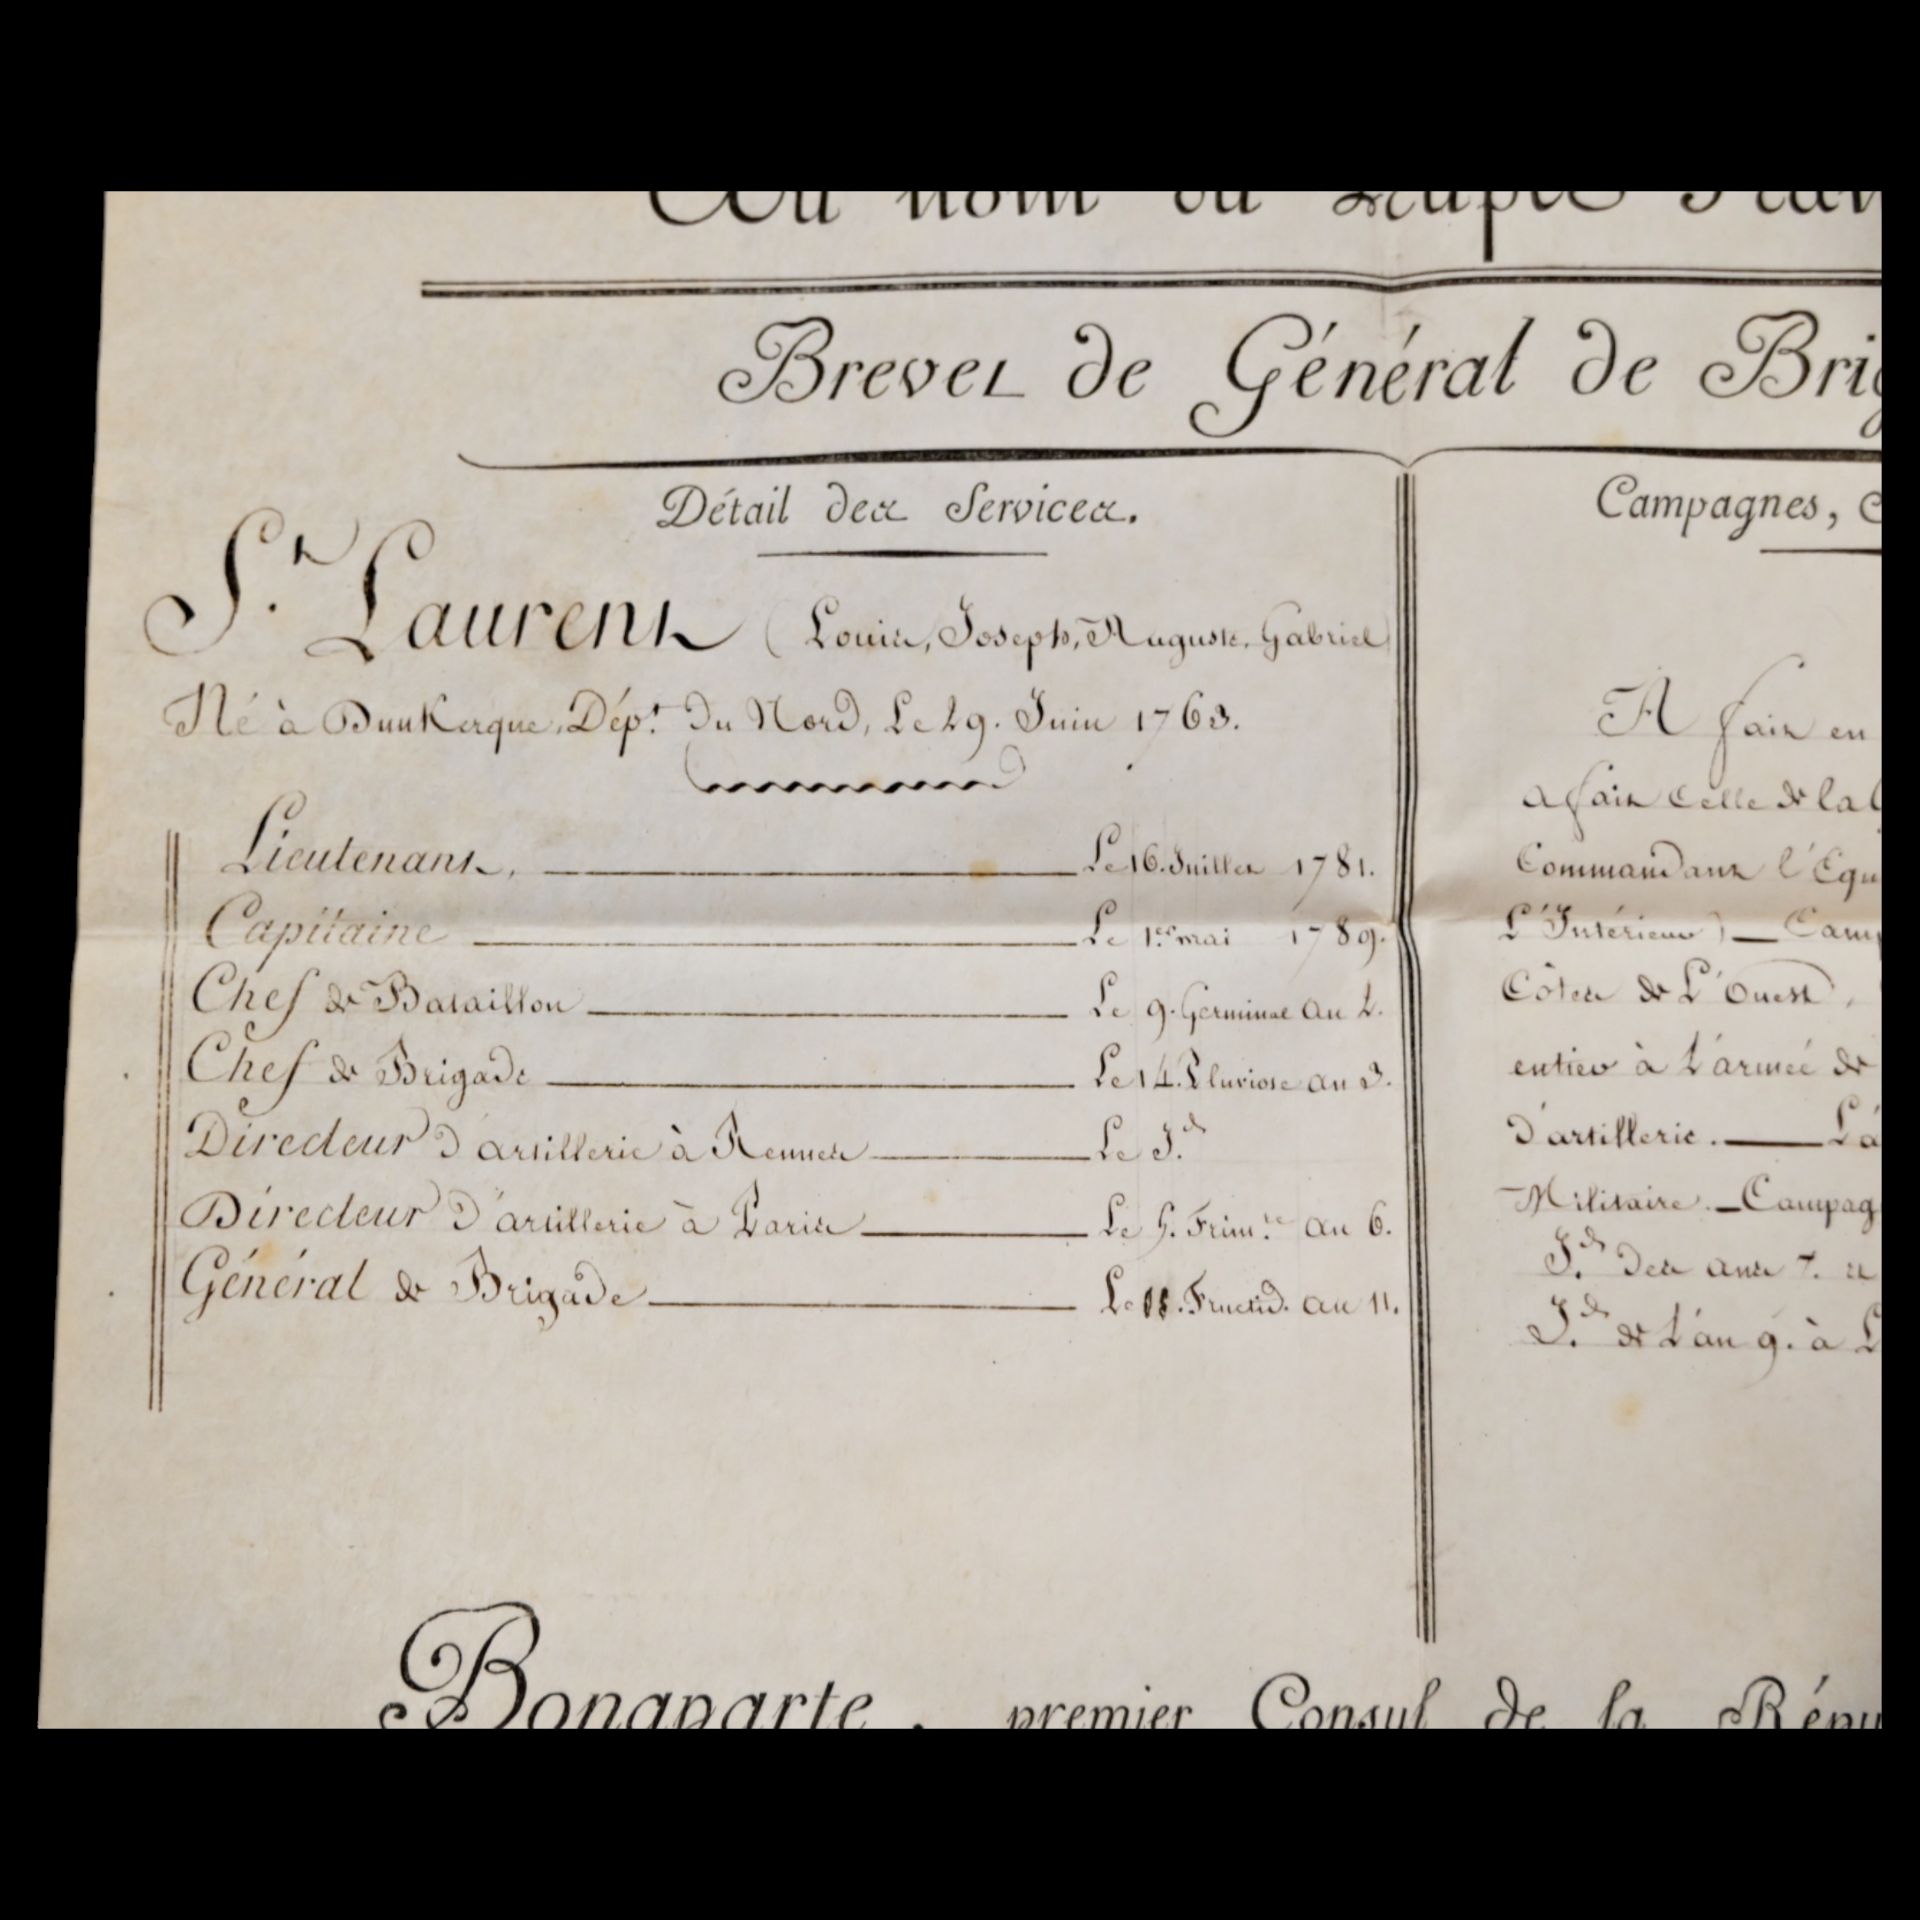 Au nom du Peuple Fran
Brevet de Général de Brig
Détail des Services.
St. Laurent (Louis, Joseph, Auguste, Gabriel)
Né à Dunkerque, Dépt. du Nord, Le 29. Juin 1763.
Lieutenant, Le 16. Juillet 1781.
Capitaine Le 1er mai 1789.
Chef de Bataillon Le 9. Germinal an 2.
Chef de Brigade Le 14. Pluviose an 3.
Directeur d'artillerie à Rennes Le Id.
Directeur d'artillerie à Paris Le 5. Frim.re an 6.
Général de Brigade Le 11. Fructid. an 11.
Campagnes,
A fait en
a fait celle de la
Commandant l'Equ
L'Intérieur) — Camp
Côtes de L'Ouest,
entier à L'armée de
d'artillerie. — La
Militaire. — Campag
Id. des ans 7. et
Id. de L'an 9. à L
Bonaparte, premier Consul de la Répu